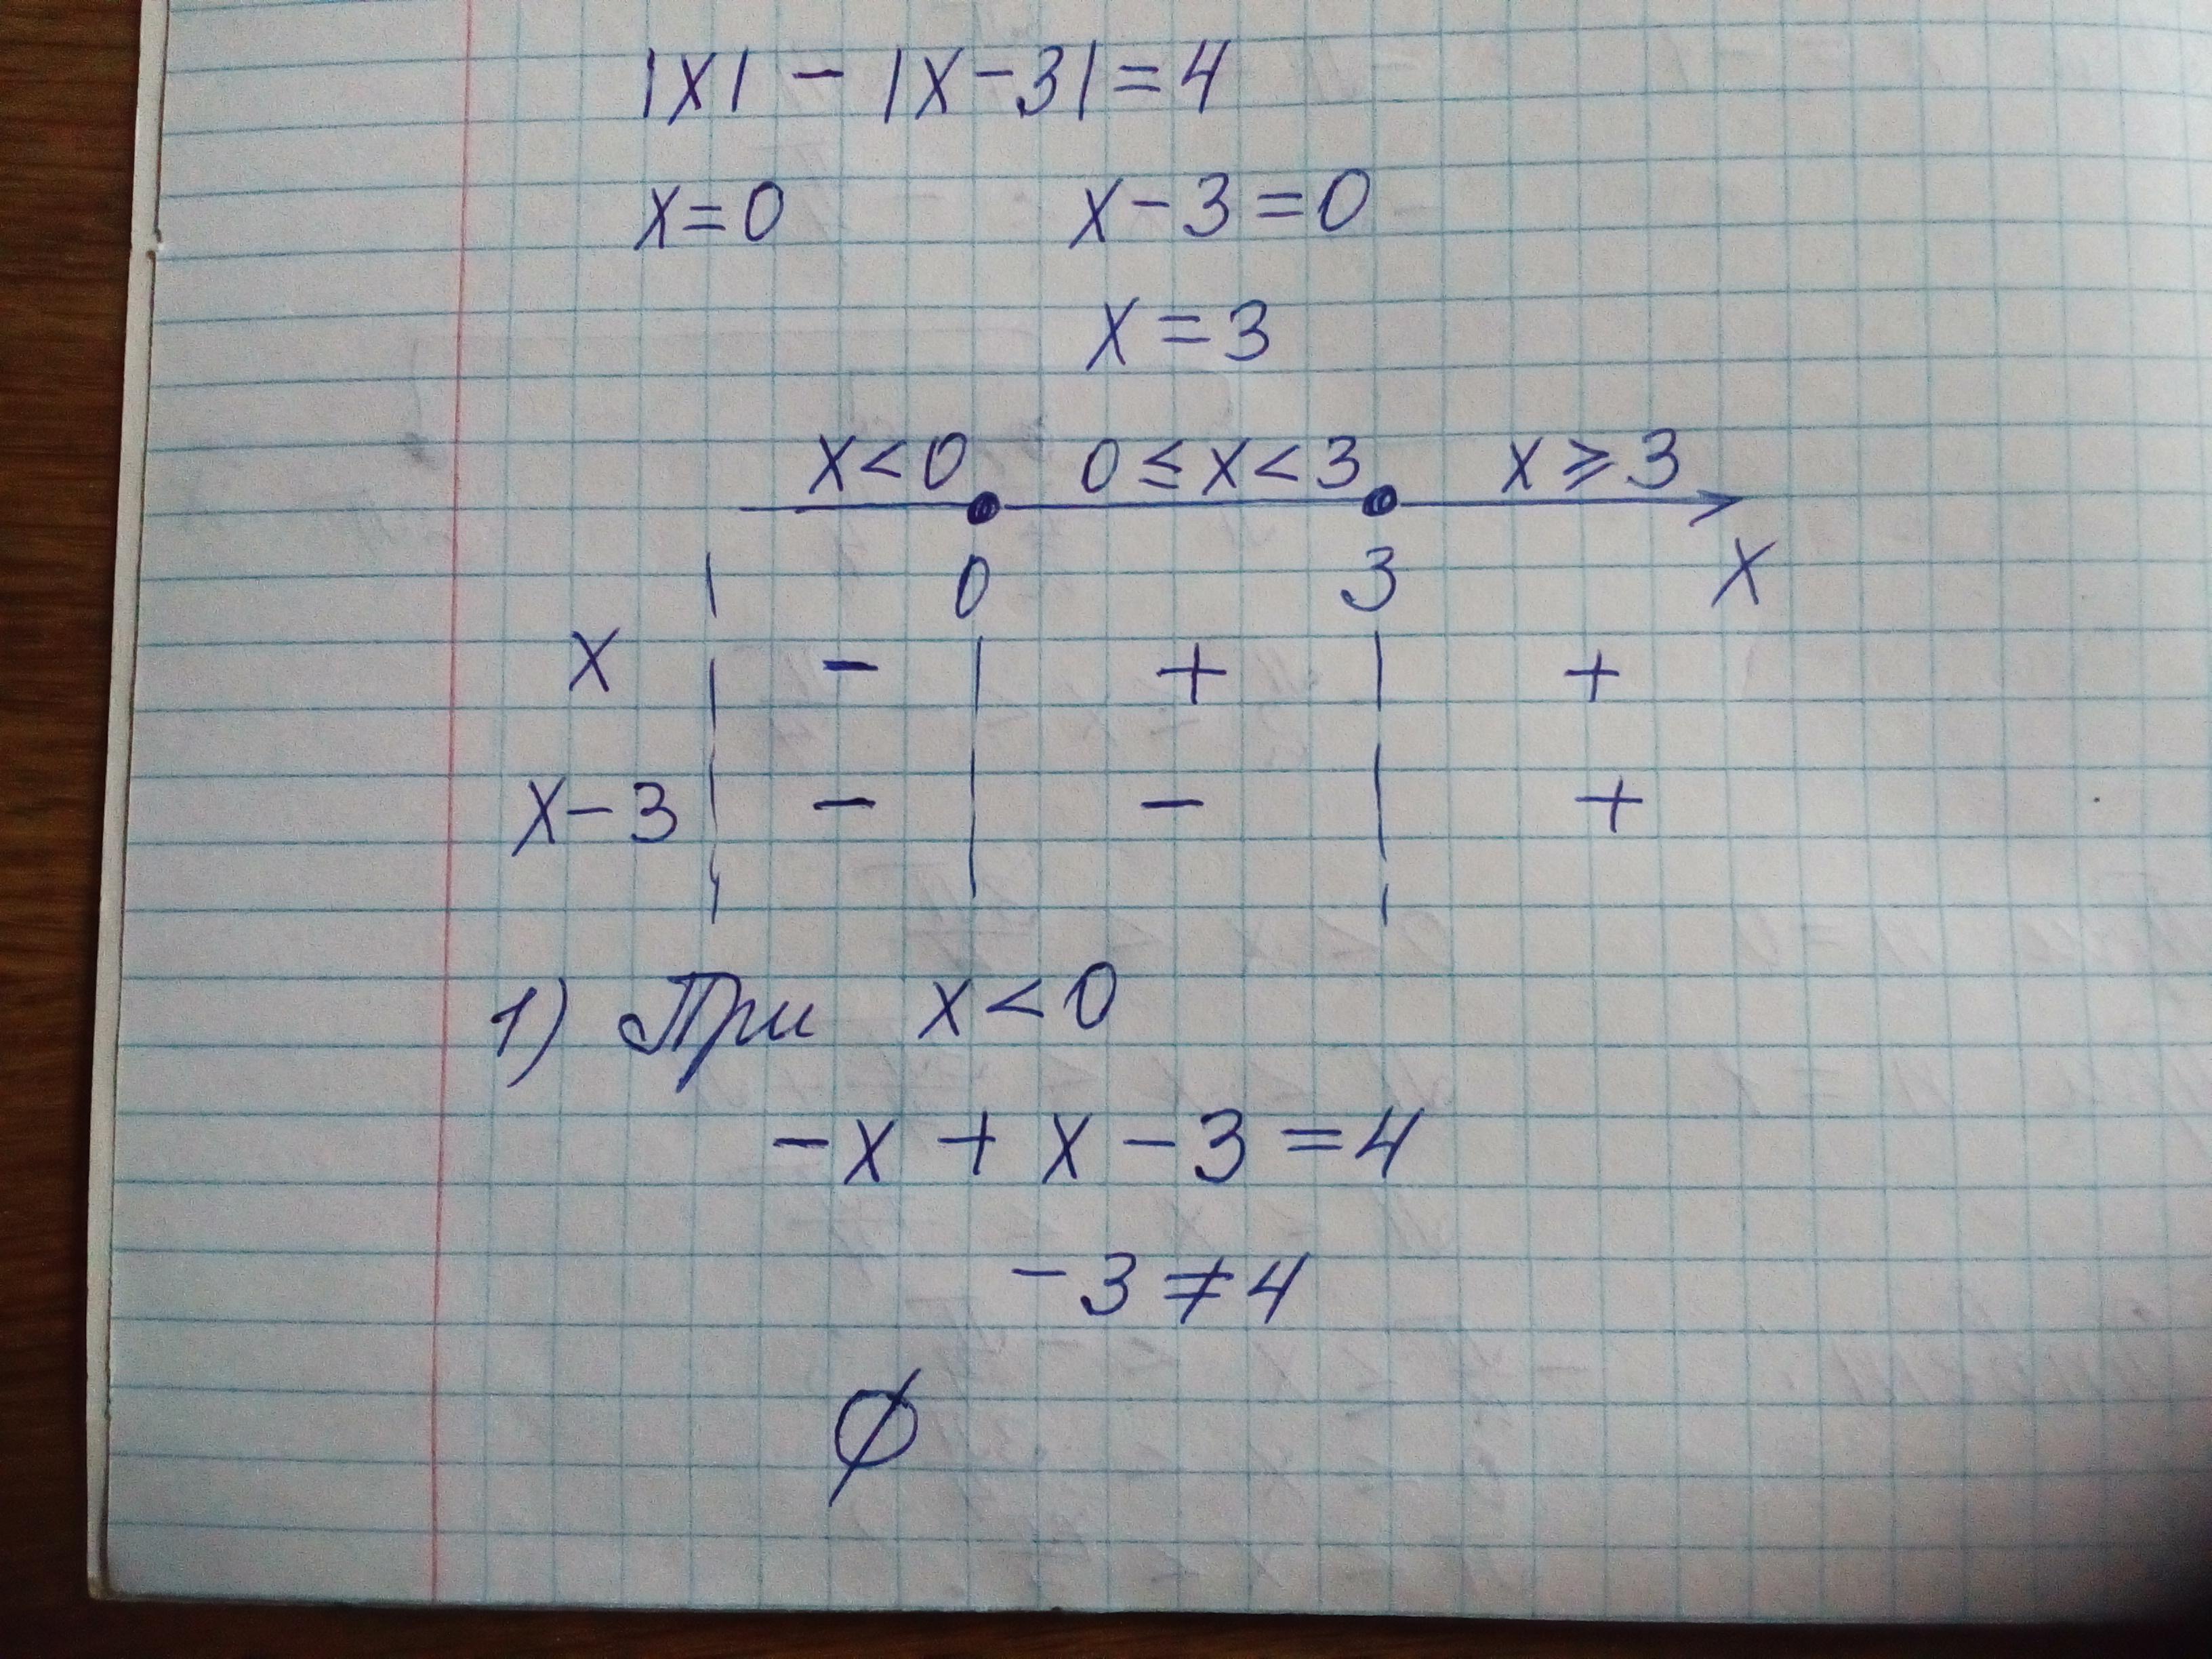 |x| - |x-3| = 4
x=0 x-3=0
x=3
x<0 0≤x<3 x⩾3
0 3 x
x - + +
x-3 - - +
1) При x<0
-x + x - 3 = 4
-3 ≠ 4
∅